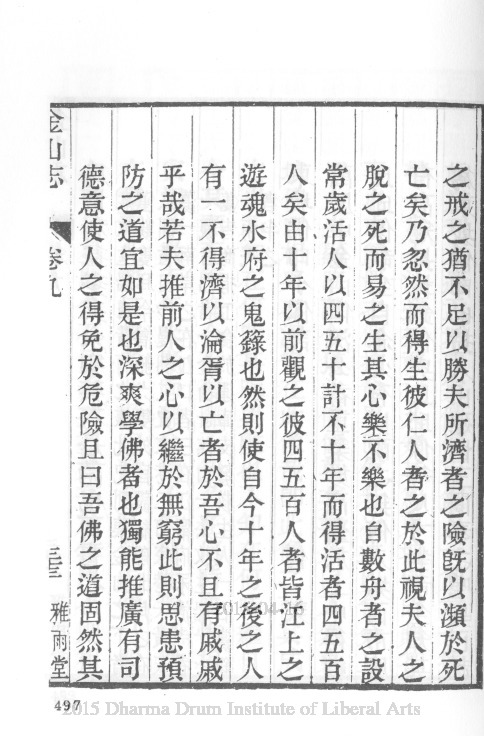 之戒之猶不足以勝夫所濟者之險旣以瀕於死
亡矣乃忽然而得生彼仁人者之於此視夫人之
脫之死而易之生其心樂不樂也自數舟者之設
常歲活人以四五十計不十年而得活者四五百
人矣由十年以前觀之彼四五百人者皆江上之
遊魂水府之鬼籙也然則使自今十年之後之人
有一不得濟以淪胥以亡者於吾心不且有戚戚
乎哉若夫推前人之心以繼於無窮此則思患預
防之道宜如是也深爽學佛者也獨能推廣有司
德意使人之得免於危險且曰吾佛之道固然其
金山志
卷九
雅雨堂
497
2015 Dharma Drum Institute of Liberal Arts